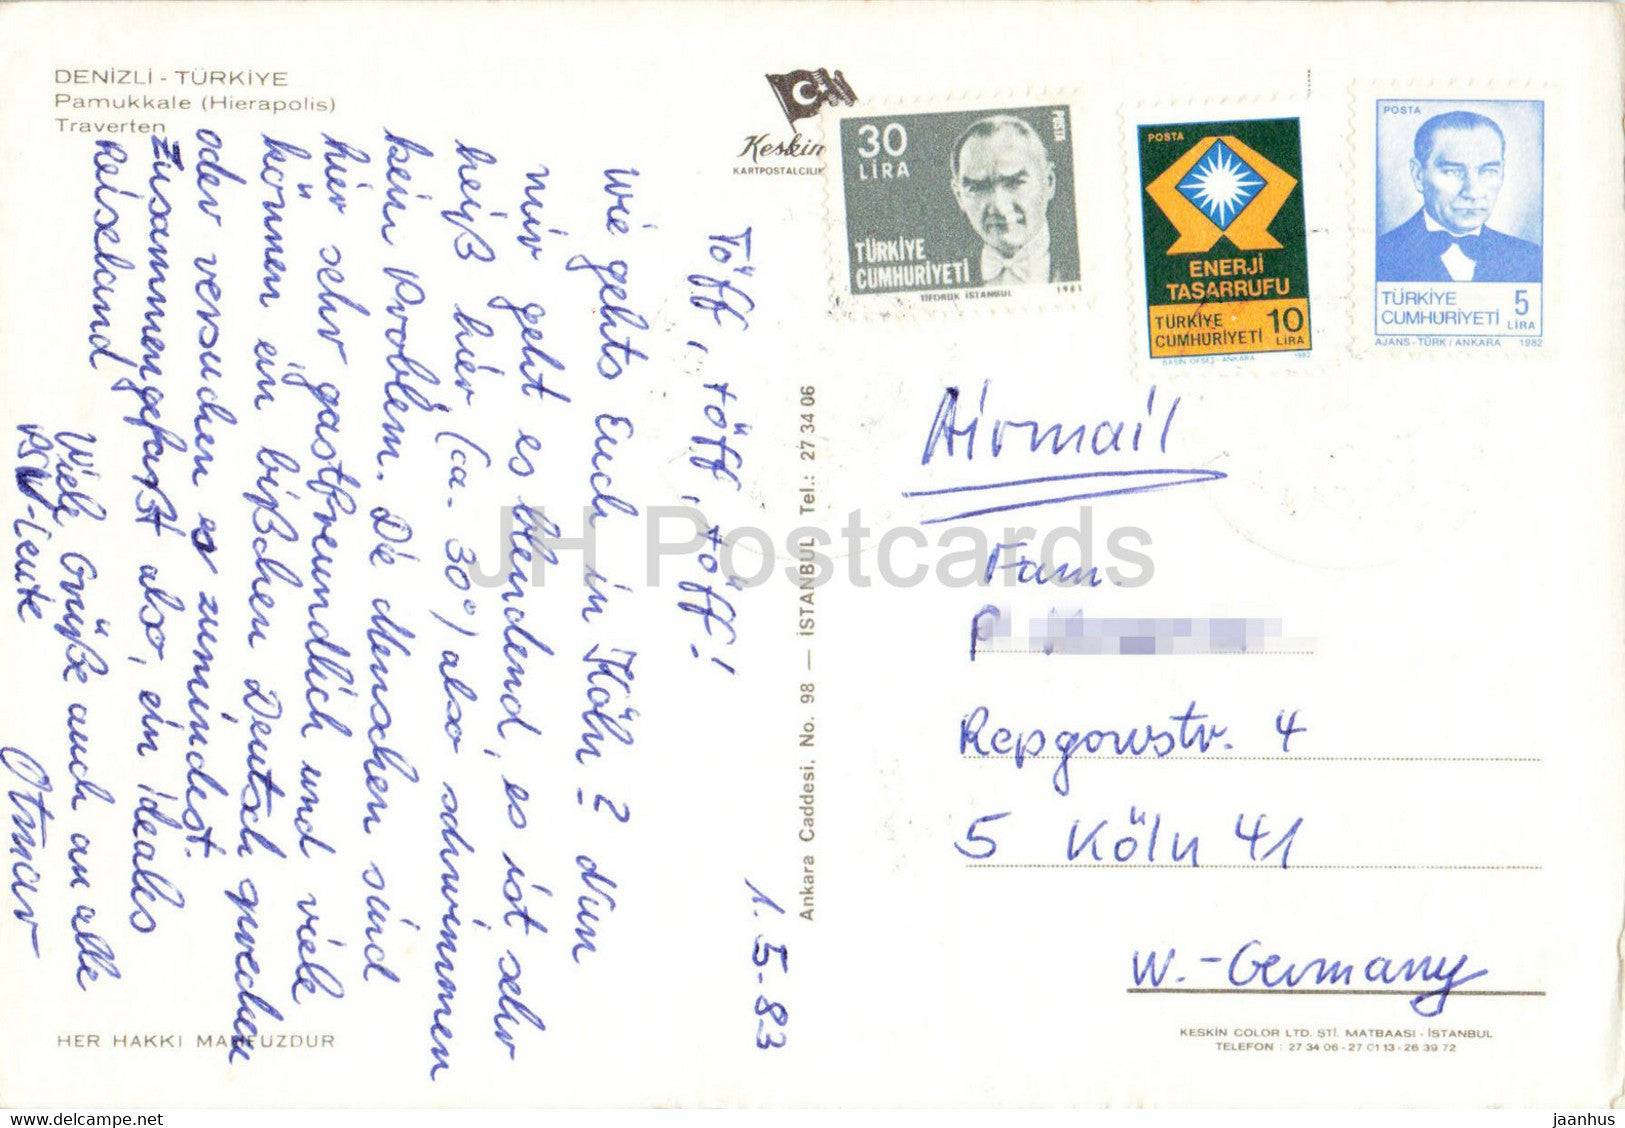 DENİZLİ - TÜRKİYE
Pamukkale (Hierapolis)
Traverten
Keskin
KARTPOSTALCILIK
30
LİRA
POSTA
TÜRKİYE
CUMHURİYETİ
TİFDRUK İSTANBUL 1981
POSTA
ENERJİ
TASARRUFU
TÜRKİYE 10
CUMHURİYETİ LİRA
BASIN OFSET - ANKARA 1982
POSTA
TÜRKİYE 5
CUMHURİYETİ LİRA
AJANS - TÜRK / ANKARA 1982
1.5.83
Töff, töff, töff!
Wie gehts Euch in Köln? Nun
mir geht es blendend, es ist sehr
heiß hier (ca. 30°) also schwimmen
kein Problem. Die Menschen sind
hier sehr gastfreundlich und viele
können ein bißchen Deutsch sprechen
oder versuchen es zumindest.
Zusammengefaßt also, ein ideales
Reiseland
Viele Grüße auch an alle
PSV-Leute
Otmar
Ankara Caddesi, No. 98 — İSTANBUL Tel.: 27 34 06
Airmail
Fam.
Repgowstr. 4
5 Köln 41
W.-Germany
HER HAKKI MAHFUZDUR
KESKIN COLOR LTD. ŞTİ. MATBAASI - İSTANBUL
TELEFON : 27 34 06 - 27 01 13 - 26 39 72
JH Postcards
www.delcampe.net
jaanhus